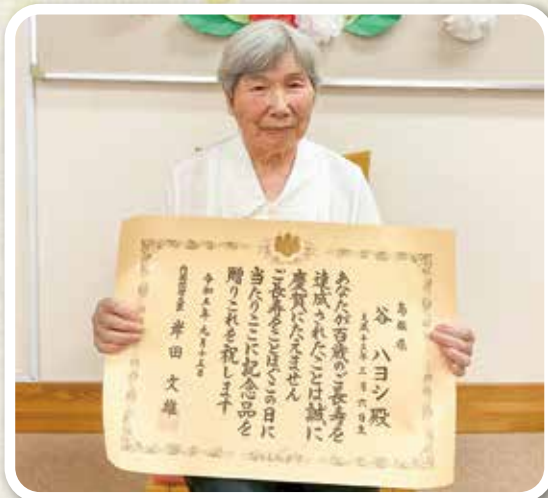 島根県
谷 ハヨシ殿
大正十三年三月六日生
あなたが百歳のご長寿を
達成されたことは誠に
慶賀にたえません
ご長寿をことほぐこの日に
当たりここに記念品を
贈りこれを祝します
令和五年九月十五日
内閣総理大臣 岸田文雄